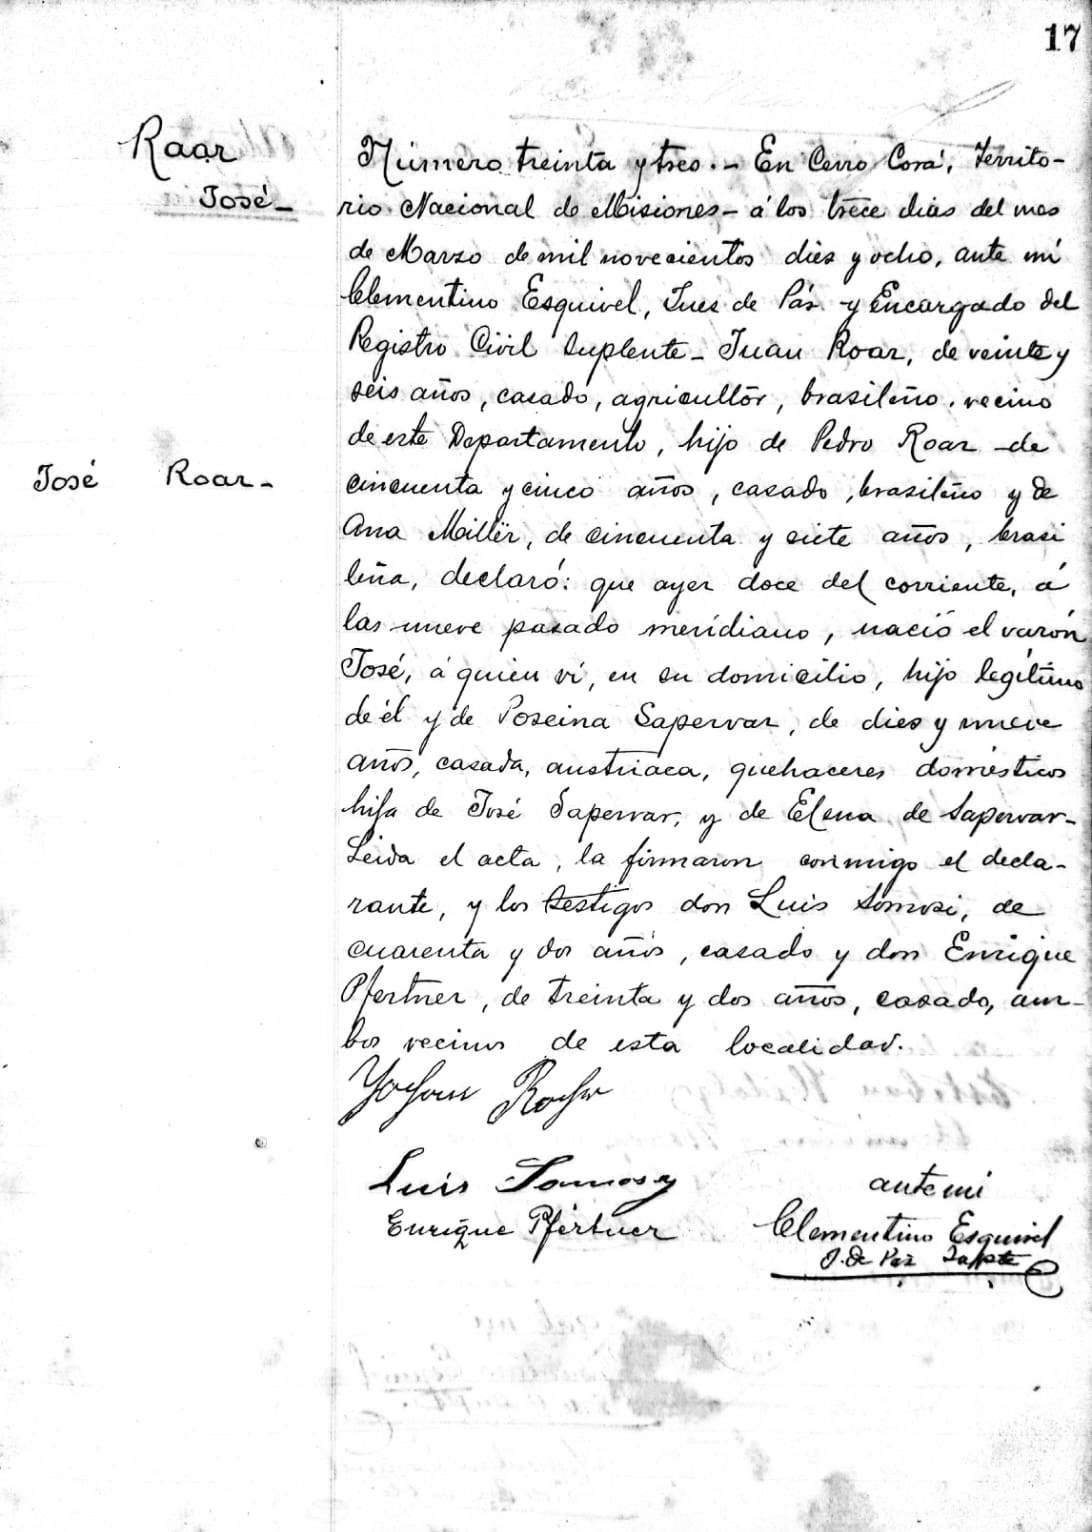 17
Raar
José-
Número treinta y tres.- En Cerro Corá, Territo-
rio Nacional de Misiones- á los trece dias del mes
de Marzo de mil novecientos dies y ocho, ante mí
Clementino Esquivel, Jues de Páz y Encargado del
Registro Civil Suplente- Juan Roar, de veinte y
seis años, casado, agricultór, brasileño, vecino
de este Departamento, hijo de Pedro Roar de
José Roar-
cincuenta y cinco años, casado, brasileño y de
Ana Millër, de cincuenta y siete años, brasi
leña, declaró: que ayer doce del corriente, á
las nueve pasado meridiano, nació el varón
José, á quien ví, en su domicilio, hijo legítimo
de él y de Poseina Sapervar, de dies y nueve
años, casada, austriaca, quehaceres domésticos
hija de José Sapervar, y de Elena de Sapervar-
Leida el acta, la firmaron conmigo el decla-
rante, y los testigos don Luis Somosi, de
cuarenta y dos años, casado y don Enrique
Pfertner, de treinta y dos años, casado, am-
bos vecinos de esta localidad.
Luis Somosy
ante mi
Enrique Pfertner
Clementino Esquivel
J. de Paz Suplte